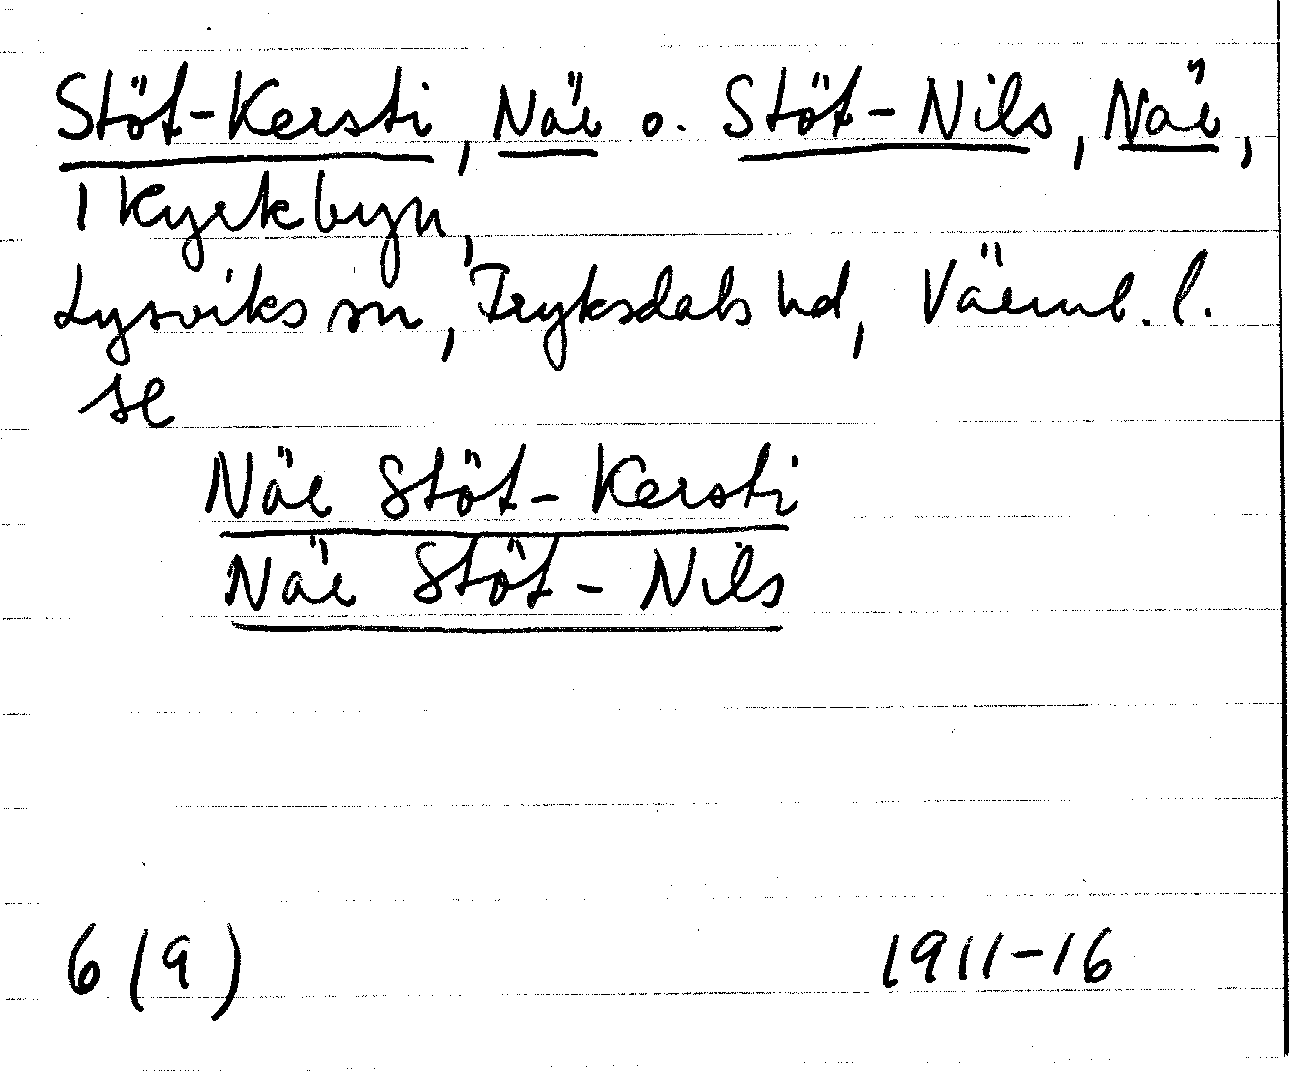 Stöt-Kersti, När o. Stöt-Nils, När,
I Kyrkbyn,
Lysviks sn, Fryksdals hd, Värml. l.
se
När Stöt-Kersti
När Stöt-Nils
6 (9) 1911-16